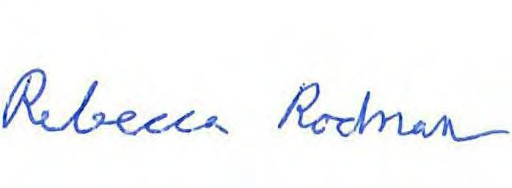 Rebecca Rodman